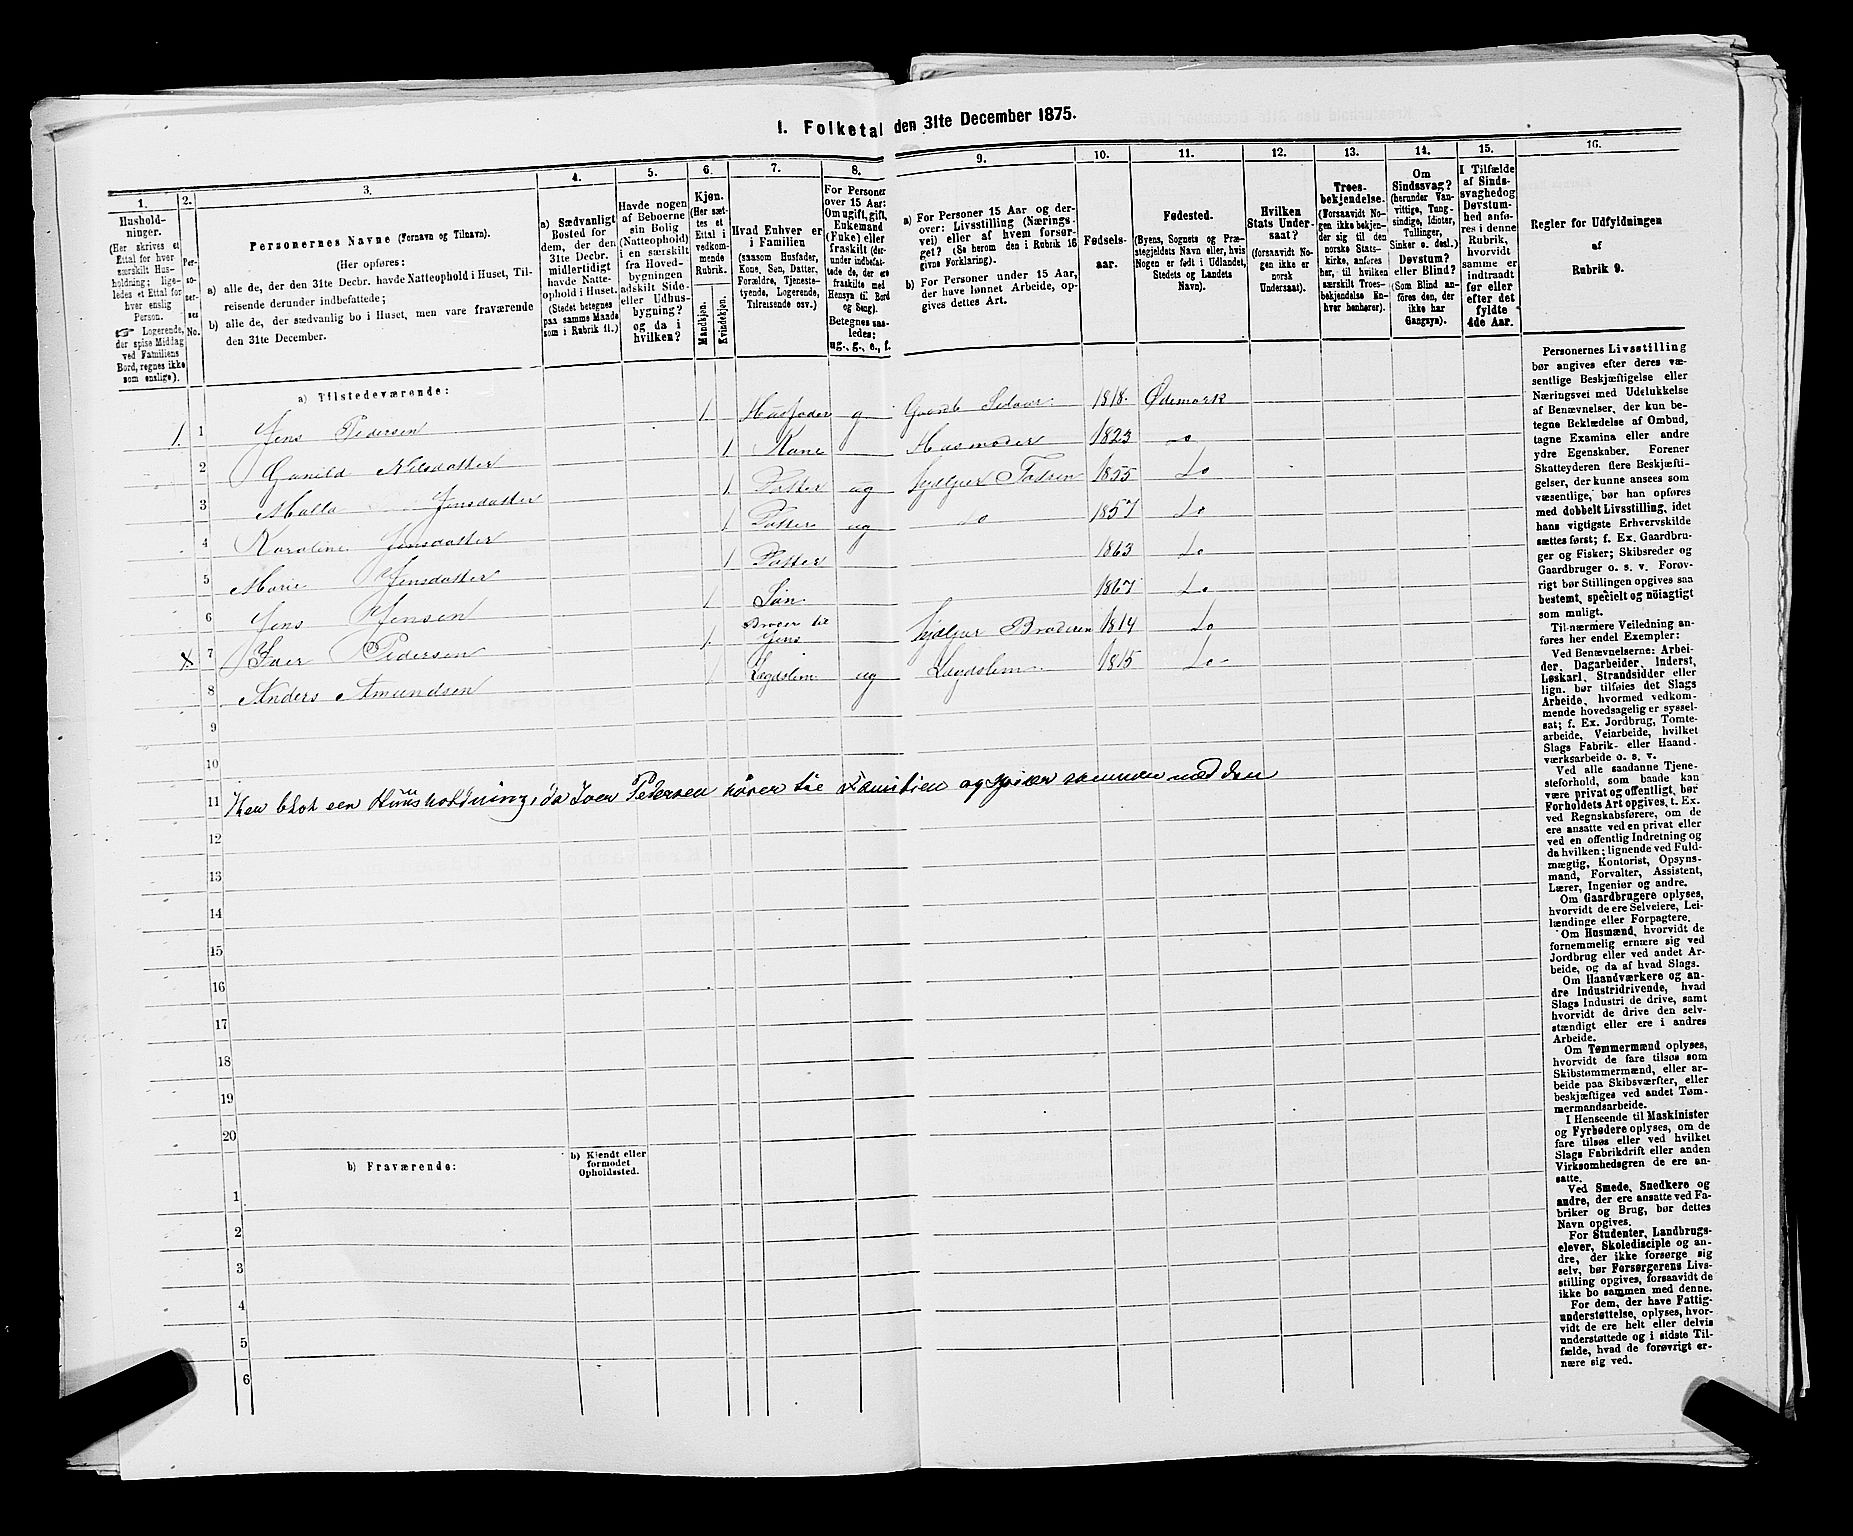 1. Folketal den 31te December 1875.
1.
Hushold-
ninger.
(Her skrives et
Ettal for hver
særskilt Hus-
holdning; lige-
ledes et Ettal for
hver enslig
Person.
☞ Logerende,
der spise Middag
ved Familiens
Bord, regnes ikke
som enslige).
2.
Per-
so-
ner-
nes
No.
3.
Personernes Navne (Fornavn og Tilnavn).
(Her opføres:
a) alle de, der den 31te Decbr. havde Natteophold i Huset, Til-
reisende derunder indbefattede;
b) alle de, der sædvanlig bo i Huset, men vare fraværende
den 31te December.
4.
a) Sædvanligt
Bosted for
dem, der den
31te Decbr.
midlertidigt
havde Natte-
ophold i Huset.
(Stedet betegnes
paa samme Maade
som i Rubrik 11.)
5.
Havde nogen
af Beboerne
sin Bolig
(Natteophold)
i en særskilt
fra Hoved-
bygningen
adskilt Side-
eller Udhus-
bygning?
og da i
hvilken?
6.
Kjøn.
(Her sæt-
tes et
Ettal i
vedkom-
mende
Rubrik.
Mandkjøn.
Kvindekjøn.
7.
Hvad Enhver er
i Familien
(saasom Husfader,
Kone, Søn, Datter,
Forældre, Tjeneste-
tyende, Logerende,
Tilreisende osv.)
8.
For Personer
over 15 Aar:
Om ugift, gift,
Enkemand
(Enke) eller
fraskilt (der-
under indbefat-
tede de, der ere
fraskilte med
Hensyn til Bord
og Seng).
Betegnes saa-
ledes:
ug., g., e., f.
9.
a) For Personer 15 Aar og der-
over: Livsstilling (Nærings-
vei) eller af hvem forsør-
get? (Se herom den i Rubrik 16
givne Forklaring).
b) For Personer under 15 Aar,
der have lønnet Arbeide, op-
gives dettes Art.
10.
Fødsels-
aar.
11.
Fødested.
(Byens, Sognets og Præ-
stegjeldets Navn eller, hvis
Nogen er født i Udlandet,
Stedets og Landets
Navn).
12.
Hvilken
Stats Under-
saat?
(forsaavidt No-
gen ikke er
norsk
Undersaat).
13.
Troes-
bekjendelse.
(Forsaavidt No-
gen ikke bekjen-
der sig til den
norske Stats-
kirke, anføres
her, til hvilken
særskilt Troes-
bekjendelse En-
hver henhører).
14.
Om
Sindssvag?
(herunder Van-
vittige, Tung-
sindige, Idioter,
Tullinger,
Sinker o. desl.)
Døvstum?
eller Blind?
(Som Blind an-
føres den, der
ikke har
Gangsyn).
15.
I Tilfælde
af Sinds-
svaghed og
Døvstum-
hed anfø-
res i denne
Rubrik,
hvorvidt
samme er
indtraadt
før eller
efter det
fyldte
4de Aar.
16.
Regler for Udfyldningen
af
Rubrik 9.
a) Tilstedeværende:
1. 1 Jens Pedersen 1 Husfader g Gaardb Selveier 1818. Ødemark
2 Gunild Nilsdatter 1 Kone Husmoder 1823 do
3 Malla Jensdatter 1 Datter ug hjelper Faderen 1855 do
4 Karoline Jensdatter 1 Datter ug do 1857 do
5 Marie Jensdatter 1 Datter 1863 do
6 Jens Jensen 1 Søn 1867 do
x 7 Iver Pedersen 1 Broer til Jens hjelper Broderen 1814 do
8 Anders Amundsen 1 Lægdslem ug Lægdslem 1815 do
9
10
11 Kun blot een Huusholdning, da Iver Pedersen hører til Familien og spiser sammen med den
12
13
14
15
16
17
18
19
20
b) Fraværende:
b) Kjendt eller
formodet
Opholdssted.
1
2
3
4
5
6
Personernes Livsstilling
bør angives efter deres væ-
sentlige Beskjæftigelse eller
Næringsvei med Udelukkelse
af Benævnelser, der kun be-
tegne Beklædelse af Ombud,
tagne Examina eller andre
ydre Egenskaber. Forener
Skatteyderen flere Beskjæfti-
gelser, der kunne ansees som
væsentlige, bør han opføres
med dobbelt Livsstilling, idet
hans vigtigste Erhvervskilde
sættes først; f. Ex. Gaardbru-
ger og Fisker; Skibsreder og
Gaardbruger o. s. v. Forøv-
rigt bør Stillingen opgives saa
bestemt, specielt og nöiagtigt
som muligt.
Til nærmere Veiledning an-
føres her endel Exempler:
Ved Benævnelserne: Arbei-
der, Dagarbeider, Inderst,
Løskarl, Strandsidder eller
lign. bør tilføies det Slags
Arbeide, hvormed vedkom-
mende hovedsagelig er syssel-
sat; f. Ex. Jordbrug, Tomte-
arbeide, Veiarbeide, hvilket
Slags Fabrik- eller Haand-
værksarbeide o. s. v.
Ved alle saadanne Tjene-
steforhold, som baade kan
være privat og offentligt, bør
Forholdets Art opgives, t. Ex.
ved Regnskabsførere, om de
ere ansatte ved en privat eller
ved en offentlig Indretning og
da hvilken; lignende ved Fuld-
mægtig, Kontorist, Opsyns-
mand, Forvalter, Assistent,
Lærer, Ingeniør og andre.
Om Gaardbrugere oplyses,
hvorvidt de ere Selveiere, Lei-
lændinge eller Forpagtere.
Om Husmænd, hvorvidt de
fornemmelig ernære sig ved
Jordbrug eller ved andet Ar-
beide, og da af hvad Slags.
Om Haandværkere og an-
dre Industridrivende, hvad
Slags Industri de drive, samt
hvorvidt de drive den selv-
stændigt eller ere i andres
Arbeide.
Om Tømmermænd oplyses,
hvorvidt de fare tilsøs som
Skibstømmermænd, eller ar-
beide paa Skibsværfter, eller
beskjæftiges ved andet Tøm-
mermandsarbeide.
I Henseende til Maskinister
og Fyrbødere oplyses, om de
fare tilsøs eller ved hvilket
Slags Fabrikdrift eller anden
Virksomhedsgren de ere an-
satte.
Ved Smede, Snedkere og
andre, der ere ansatte ved Fa-
briker og Brug, bør dettes
Navn opgives.
For Studenter, Landbrugs-
elever, Skoledisciple og an-
dre, der ikke forsørge sig
selv, bør Forsørgerens Livs-
stilling opgives, forsaavidt de
ikke bo sammen med denne.
For dem, der have Fattig-
understøttelse, oplyses, hvor-
vidt de ere helt eller delvis
understøttede og i sidste Til-
fælde, hvad de forøvrigt er-
nære sig ved.